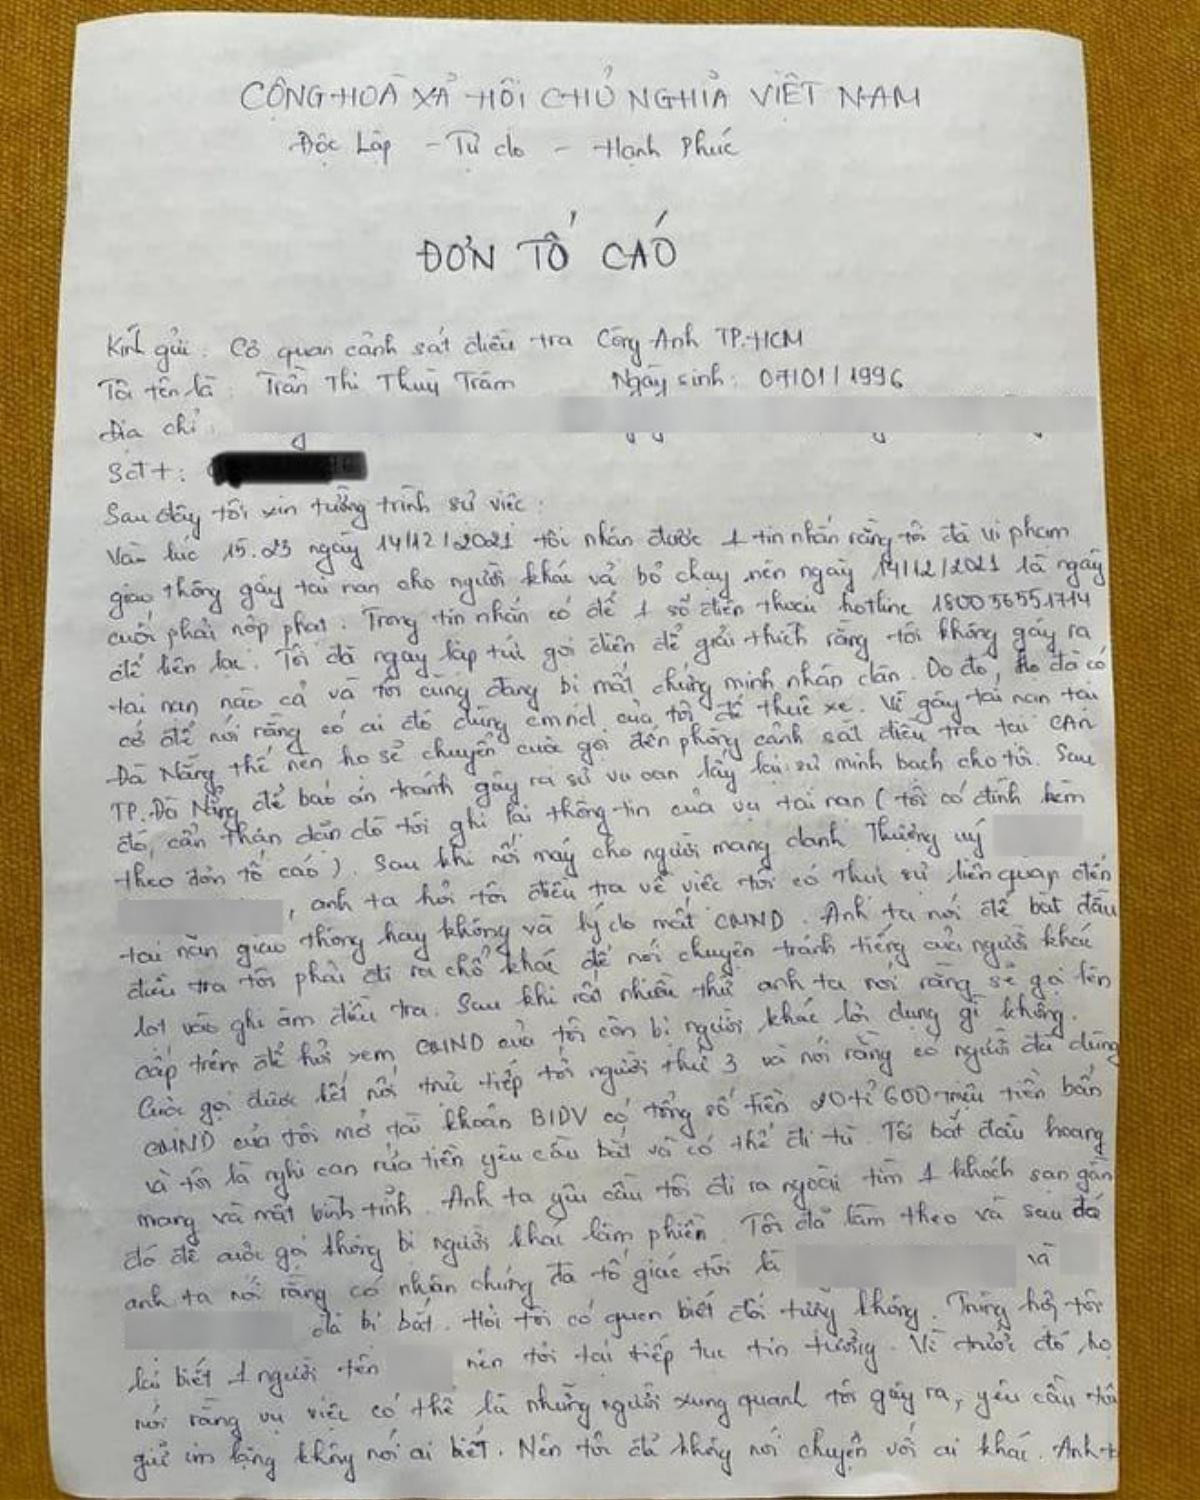 CỘNG HOÀ XÃ HỘI CHỦ NGHĨA VIỆT NAM
Độc Lập - Tự do - Hạnh Phúc
ĐƠN TỐ CÁO
Kính gửi: Cơ quan cảnh sát điều tra Công Anh TP.HCM
Tôi tên là: Trần Thị Thuỳ Trâm Ngày sinh: 07/01/1996
Địa chỉ:
Sđt:
Sau đây tôi xin tường trình sự việc:
Vào lúc 15.23 ngày 14/12/2021 tôi nhận được 1 tin nhắn rằng tôi đã vi phạm
giao thông gây tai nạn cho người khác và bỏ chạy nên ngày 14/12/2021 là ngày
cuối phải nộp phạt. Trong tin nhắn có để 1 số điện thoại hotline 180056551714
để liên lạc. Tôi đã ngay lập tức gọi điện để giải thích rằng tôi không gây ra
tai nạn nào cả và tôi cũng đang bị mất chứng minh nhân dân. Do đó, họ đã có
cớ để nói rằng có ai đó dùng cmnd của tôi để thuê xe. Vì gây tai nạn tại
Đà Nẵng thế nên họ sẽ chuyển cuộc gọi đến phòng cảnh sát điều tra tại CAN
TP.Đà Nẵng để báo án tránh gây ra sự vụ oan lấy lại sự minh bạch cho tôi. Sau
đó, cẩn thận dặn dò tôi ghi lại thông tin của vụ tai nạn (tôi có đính kèm
theo đơn tố cáo). Sau khi nối máy cho người mang danh Thượng uý
, anh ta hỏi tôi điều tra về việc tôi có thực sự liên quan đến
tai nạn giao thông hay không và lý do mất CMND. Anh ta nói để bắt đầu
điều tra tôi phải đi ra chỗ khác để nói chuyện tránh tiếng của người khác
lọt vào ghi âm điều tra. Sau khi rất nhiều thứ anh ta nói rằng sẽ gọi lên
cấp trên để hỏi xem CMND của tôi còn bị người khác lợi dụng gì không.
Cuộc gọi được kết nối trực tiếp tới người thứ 3 và nói rằng có người đã dùng
CMND của tôi mở tài khoản BIDV có tổng số tiền 20 tỉ 600 triệu tiền bẩn
và tôi là nghi can rửa tiền yêu cầu bắt và có thể đi tù. Tôi bắt đầu hoang
mang và mất bình tĩnh. Anh ta yêu cầu tôi đi ra ngoài tìm 1 khách sạn gần
đó để cuộc gọi không bị người khác làm phiền. Tôi đã làm theo và sau đó
anh ta nói rằng có nhân chứng đã tố giác tôi là và
đã bị bắt. Hỏi tôi có quen biết đối tượng không. Trùng hợp tôi
lại biết 1 người tên nên tôi lại tiếp tục tin tưởng. Vì trước đó họ
nói rằng vụ việc có thể là những người xung quanh tôi gây ra, yêu cầu tôi
giữ im lặng không nói ai biết. Nên tôi đã không nói chuyện với ai khác. Anh t